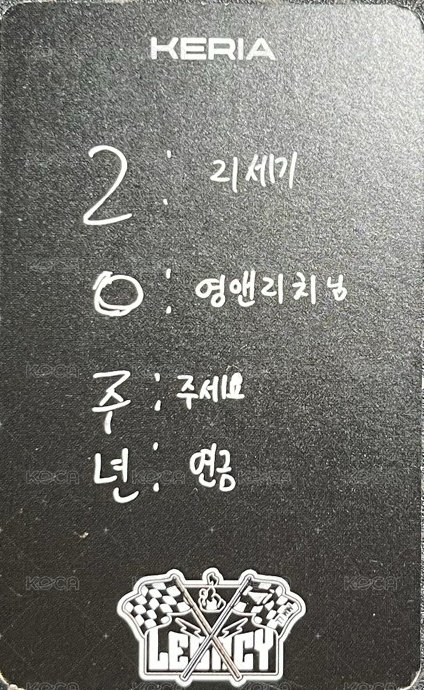 KERIA
2 : 리세기
0 : 영앤리치님
주 : 주세요
년 : 연금
LEGACY
KOCA